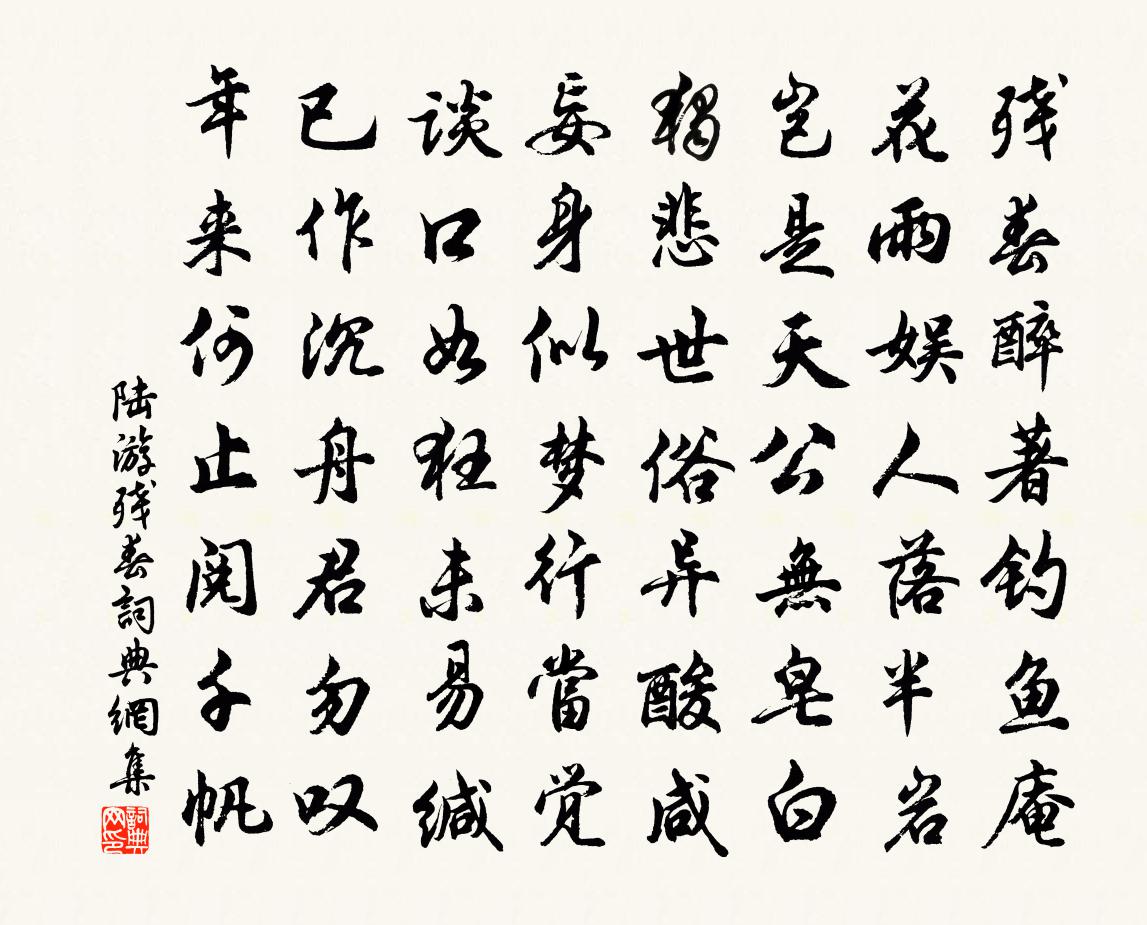 残春醉著钓鱼庵
花雨娱人落半岩
岂是天公無皂白
独悲世俗异酸咸
妄身似梦行當觉
谈口如狂未易缄
已作沉舟君勿叹
年来何止阅千帆
陆游残春詞典網集
詞典网印